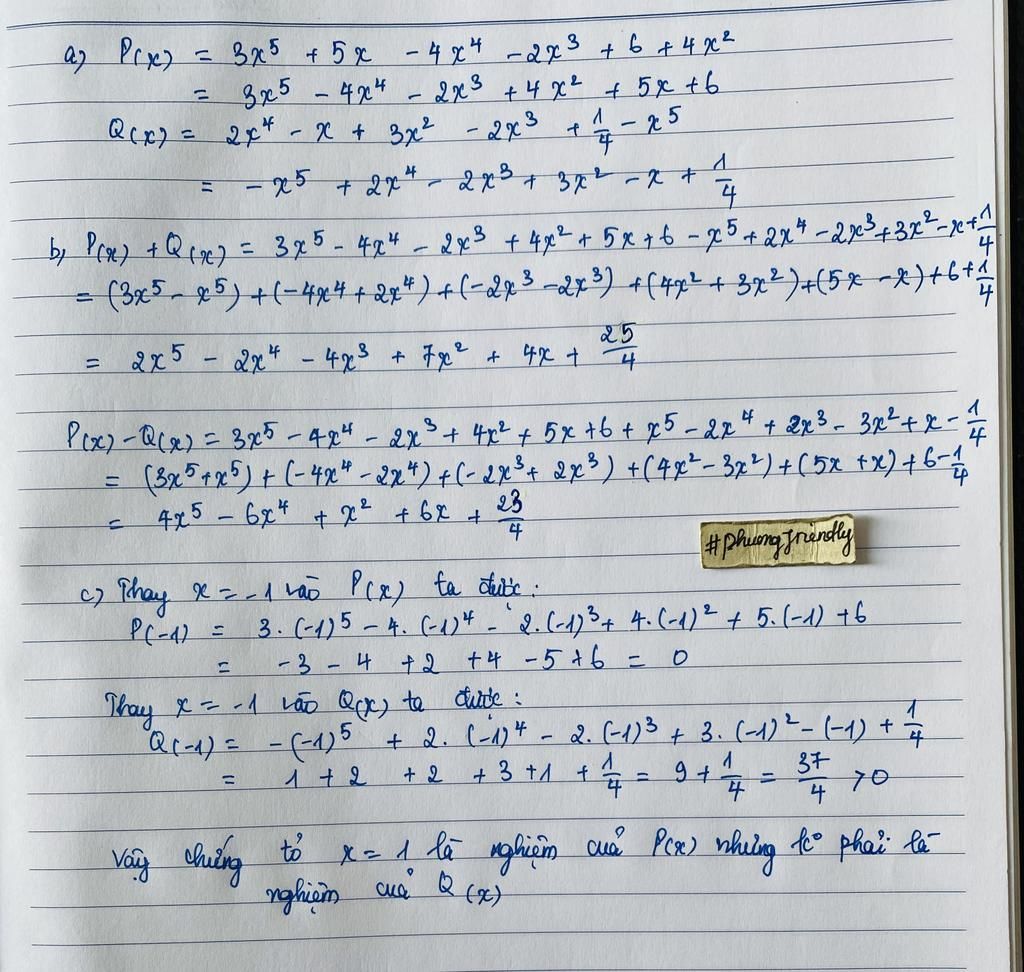 a) P(x) = 3x⁵ + 5x - 4x⁴ - 2x³ + 6 + 4x²
= 3x⁵ - 4x⁴ - 2x³ + 4x² + 5x + 6
Q(x) = 2x⁴ - x + 3x² - 2x³ + 1/4 - x⁵
= - x⁵ + 2x⁴ - 2x³ + 3x² - x + 1/4
b) P(x) + Q(x) = 3x⁵ - 4x⁴ - 2x³ + 4x² + 5x + 6 - x⁵ + 2x⁴ - 2x³ + 3x² - x + 1/4
= (3x⁵ - x⁵) + (-4x⁴ + 2x⁴) + (-2x³ - 2x³) + (4x² + 3x²) + (5x - x) + 6 + 1/4
= 2x⁵ - 2x⁴ - 4x³ + 7x² + 4x + 25/4
P(x) - Q(x) = 3x⁵ - 4x⁴ - 2x³ + 4x² + 5x + 6 + x⁵ - 2x⁴ + 2x³ - 3x² + x - 1/4
= (3x⁵ + x⁵) + (-4x⁴ - 2x⁴) + (-2x³ + 2x³) + (4x² - 3x²) + (5x + x) + 6 - 1/4
= 4x⁵ - 6x⁴ + x² + 6x + 23/4
#phuongfriendly
c) Thay x = -1 vào P(x) ta được :
P(-1) = 3. (-1)⁵ - 4. (-1)⁴ - 2. (-1)³ + 4. (-1)² + 5. (-1) + 6
= -3 - 4 + 2 + 4 - 5 + 6 = 0
Thay x = -1 vào Q(x) ta được :
Q(-1) = - (-1)⁵ + 2. (-1)⁴ - 2. (-1)³ + 3. (-1)² - (-1) + 1/4
= 1 + 2 + 2 + 3 + 1 + 1/4 = 9 + 1/4 = 37/4 > 0
Vậy chứng tỏ x = 1 là nghiệm của P(x) nhưng k° phải là
nghiệm của Q(x)